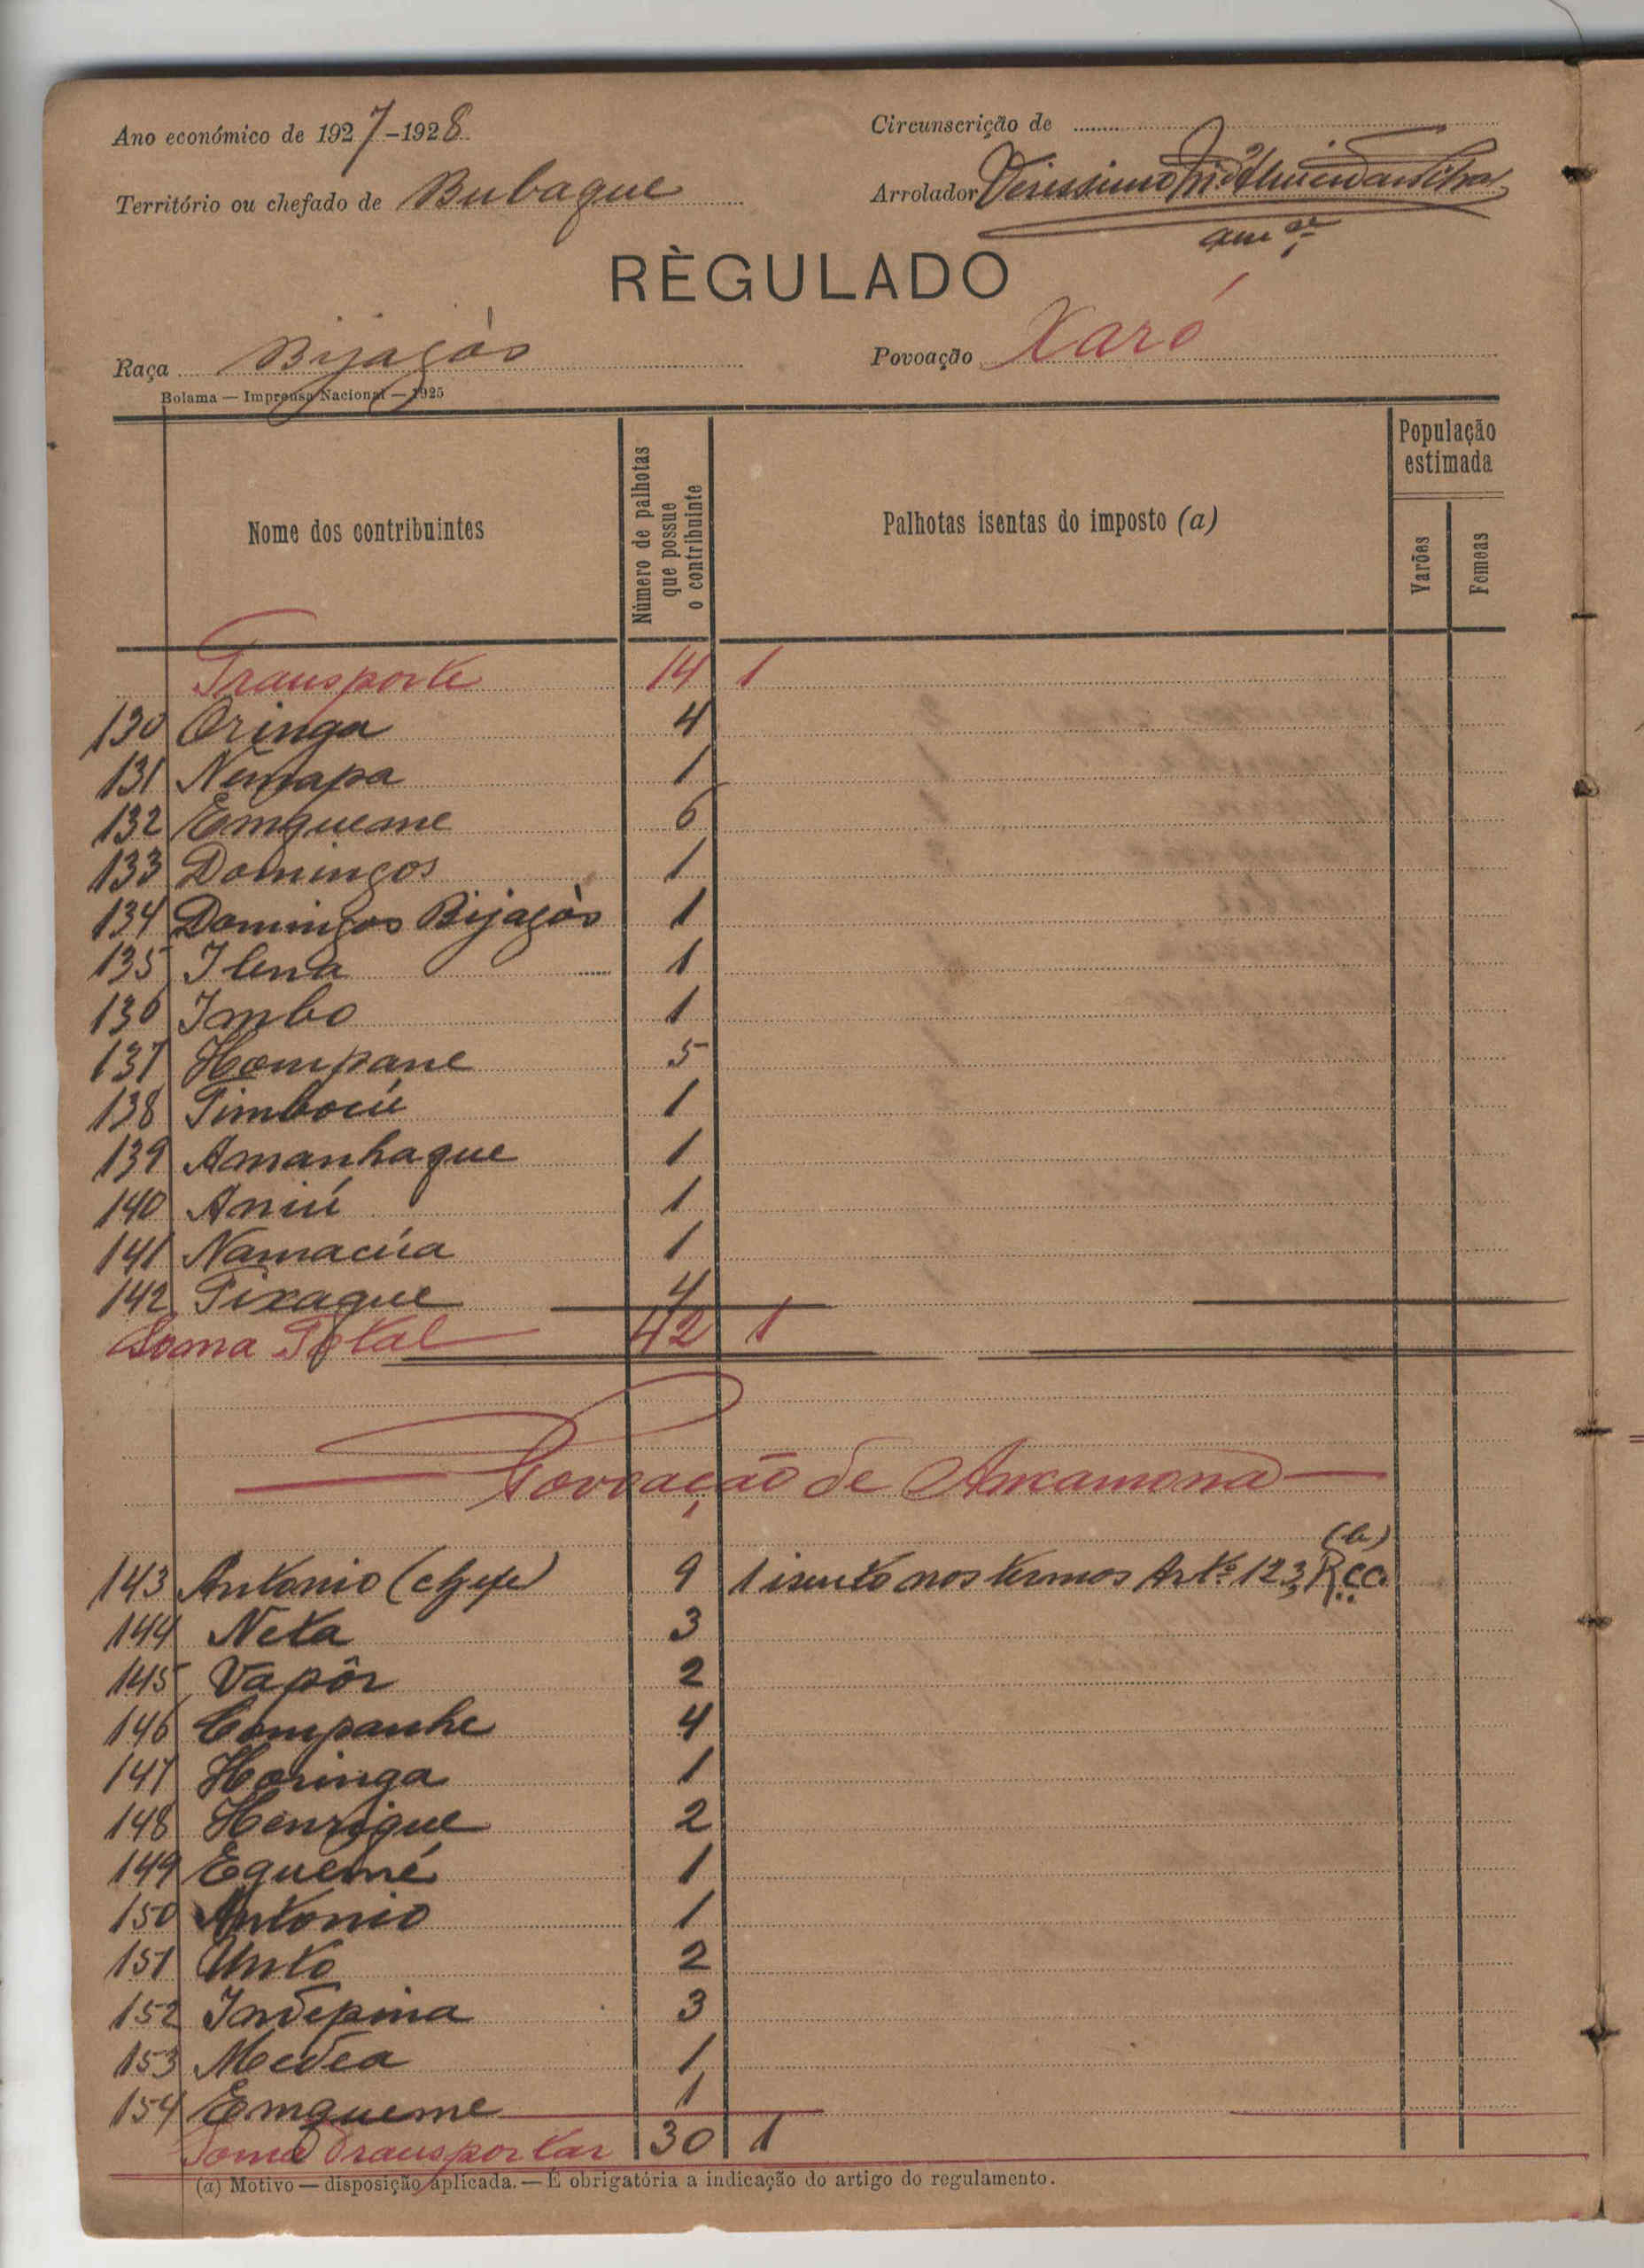 Ano económico de 1927-1928
Circunscrição de
Território ou chefado de Bubaque
Arrolador Verissimo
RÈGULADO
Raça Bijagós
Povoação Xaró
Bolama — Imprensa Nacional — 1925
Nome dos contribuintes
Número de palhotas que possue o contribuinte
Palhotas isentas do imposto (a)
População estimada
Varões
Femeas
Transporte 14 1
130 Oringa 4
131 Nemapa 1
132 Emqueme 6
133 Domingos 1
134 Domingos Bijagós 1
135 Ilena 1
136 Imbo 1
137 Hompane 5
138 Timbocú 1
139 Amanhaque 1
140 Aniú 1
141 Namacúa 1
142 Tixaque 4
Soma Total 42 1
Povoação de Ancamona
(a)
143 Antonio (chefe) 9 1 isento nos termos Artº 123 R.C.C.
144 Neta 3
145 Vapôr 2
146 Companhe 4
147 Horinga 1
148 Henrique 2
149 Equémé 1
150 Antonio 1
151 Unto 2
152 Indepina 3
153 Medea 1
154 Emqueme 1
Soma Transportar 30 1
(a) Motivo — disposição aplicada. — É obrigatória a indicação do artigo do regulamento.